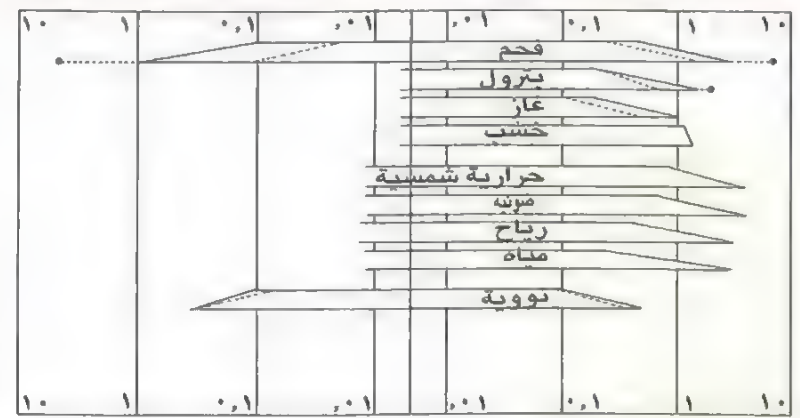 ١٠ ١ ٠,١ ٠,٠١ ٠,٠١ ٠,١ ١ ١٠
فحم
بترول
غاز
خشب
حرارية شمسية
ضوئية
رياح
مياه
نووية
١٠ ١ ٠,١ ٠,٠١ ٠,٠١ ٠,١ ١ ١٠